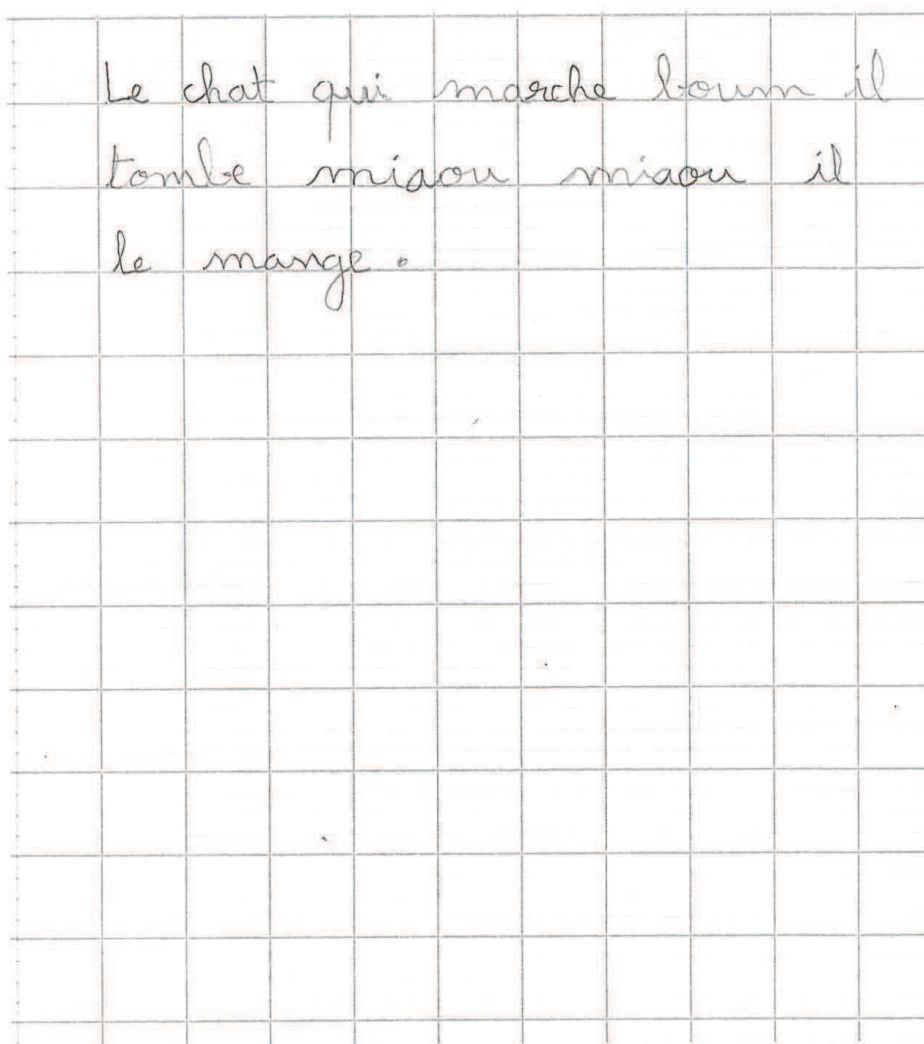 Le chat qui marche boum il
tombe miaou miaou il
le mange.